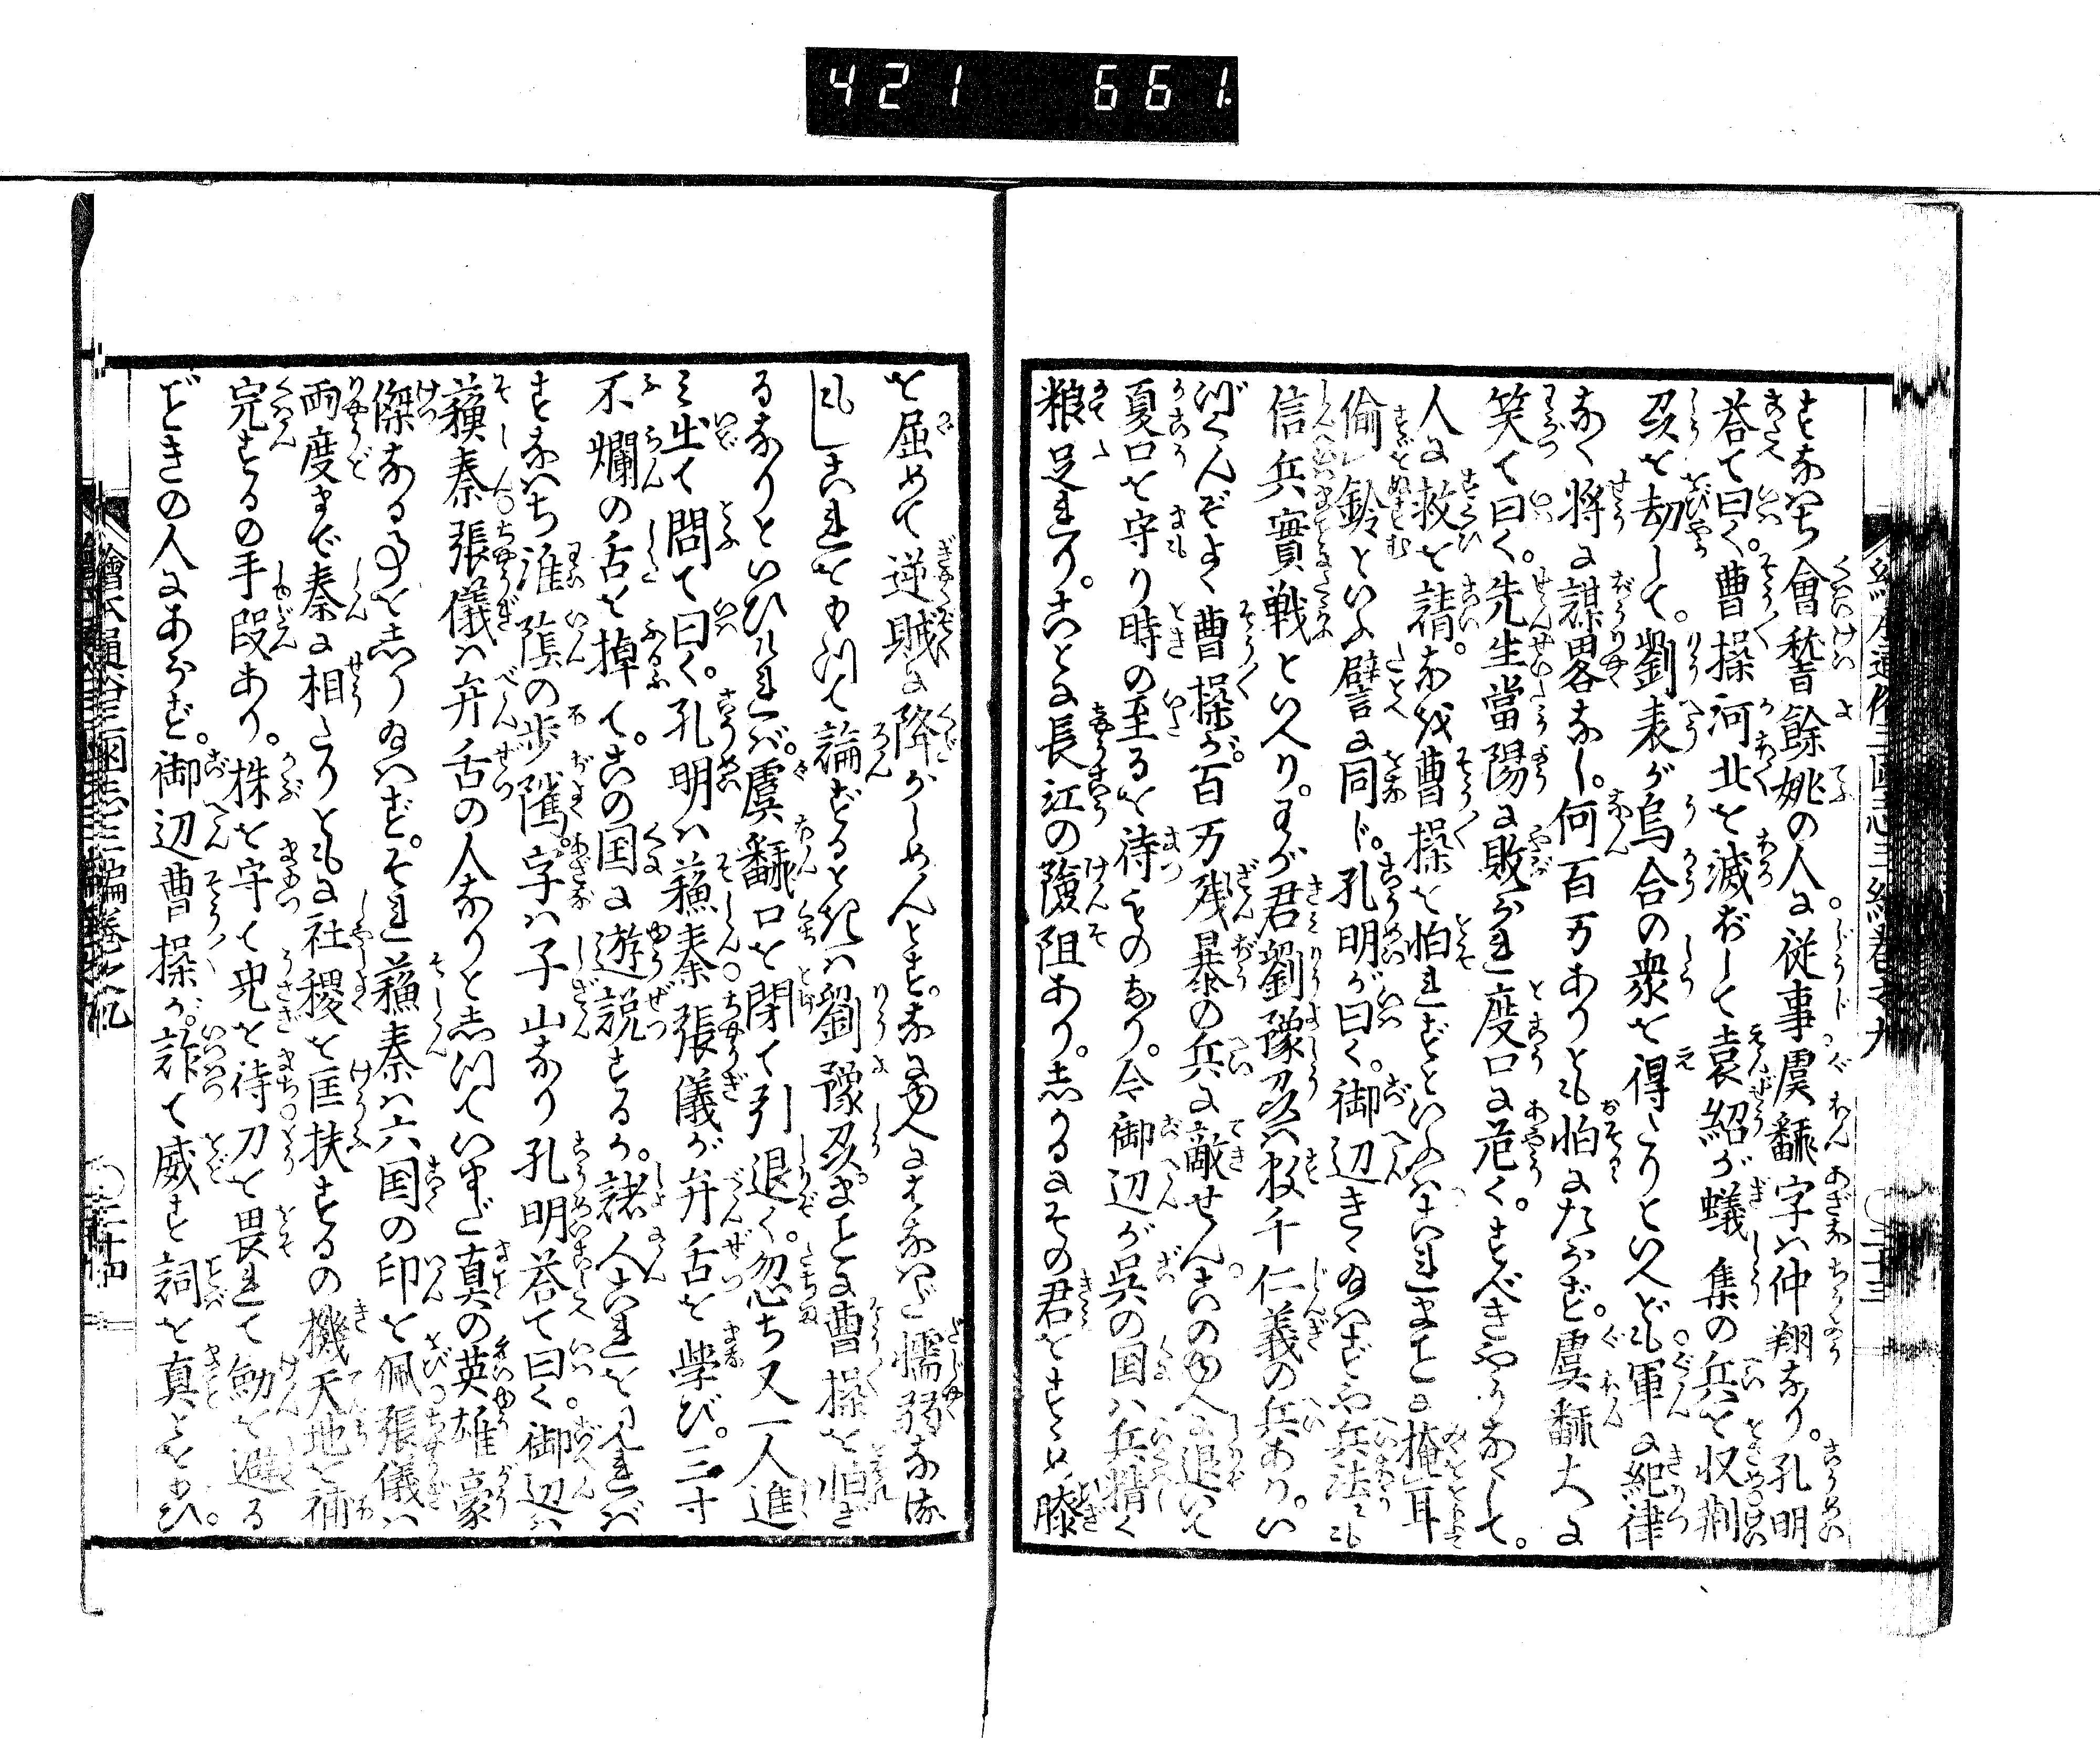 421 661
すなはち會誓餘姚の人に。従事虞翻字ハ仲翔なり。孔明
荅て曰く。曹操河北を滅ぼして袁紹が蟻集の兵を収荊
州を刧して。劉表が烏合の衆を得たりといへども軍に紀律
なく将に謀畧なし。何百万ありとも怕るにたらず。虞翻大に
笑て曰く。先生當陽に敗られ夏口に危く。すべきやうなくして。
人に救を請。なを曹操を怕れずといふハこれまことに掩耳
偷鈴といふ譬に同じ。孔明が曰く。御辺きゝ給はずや兵法にも
信兵實戦といへり。わが君劉豫州ハ数千仁義の兵あり。い
づくんぞよく曹操が。百万残暴の兵に敵せん。このゆへに退いて
夏口を守り時の至るを待ものなり。今御辺が呉の国ハ兵精く
粮足れり。ことに長江の險阻あり。しかるにその君をすゝめ膝
を屈めて逆賊に降がしめんとす。なにゆへにすなはだ懦弱なる
これをもつて論ずるときハ劉豫州。まことに曹操を怕ざ
るなりといひければ。虞翻口を閉て引退く。忽ち又一人進
み出て問て曰く。孔明ハ蘓秦張儀が弁舌を学び。三寸
不爛の舌を掉て。この国に遊説するか。諸人これを見れば
すなはち淮陰の歩隲。字ハ子山なり孔明荅て曰く。御辺ハ
蘓秦張儀ハ弁舌の人なりとしつていまだ真の英雄豪
傑なる事をしり給はず。それ蘓秦ハ六国の印を佩張儀ハ
両度まで秦に相たりともに社稷を匡扶するの機天地を補
完するの手段あり。株を守て兎を待刀を畏れて劔を避る
ごときの人にあらず。御辺曹操が。詐て威す詞を真とおもひ。
繪本通俗三國志三編巻之九
二十三
二十四